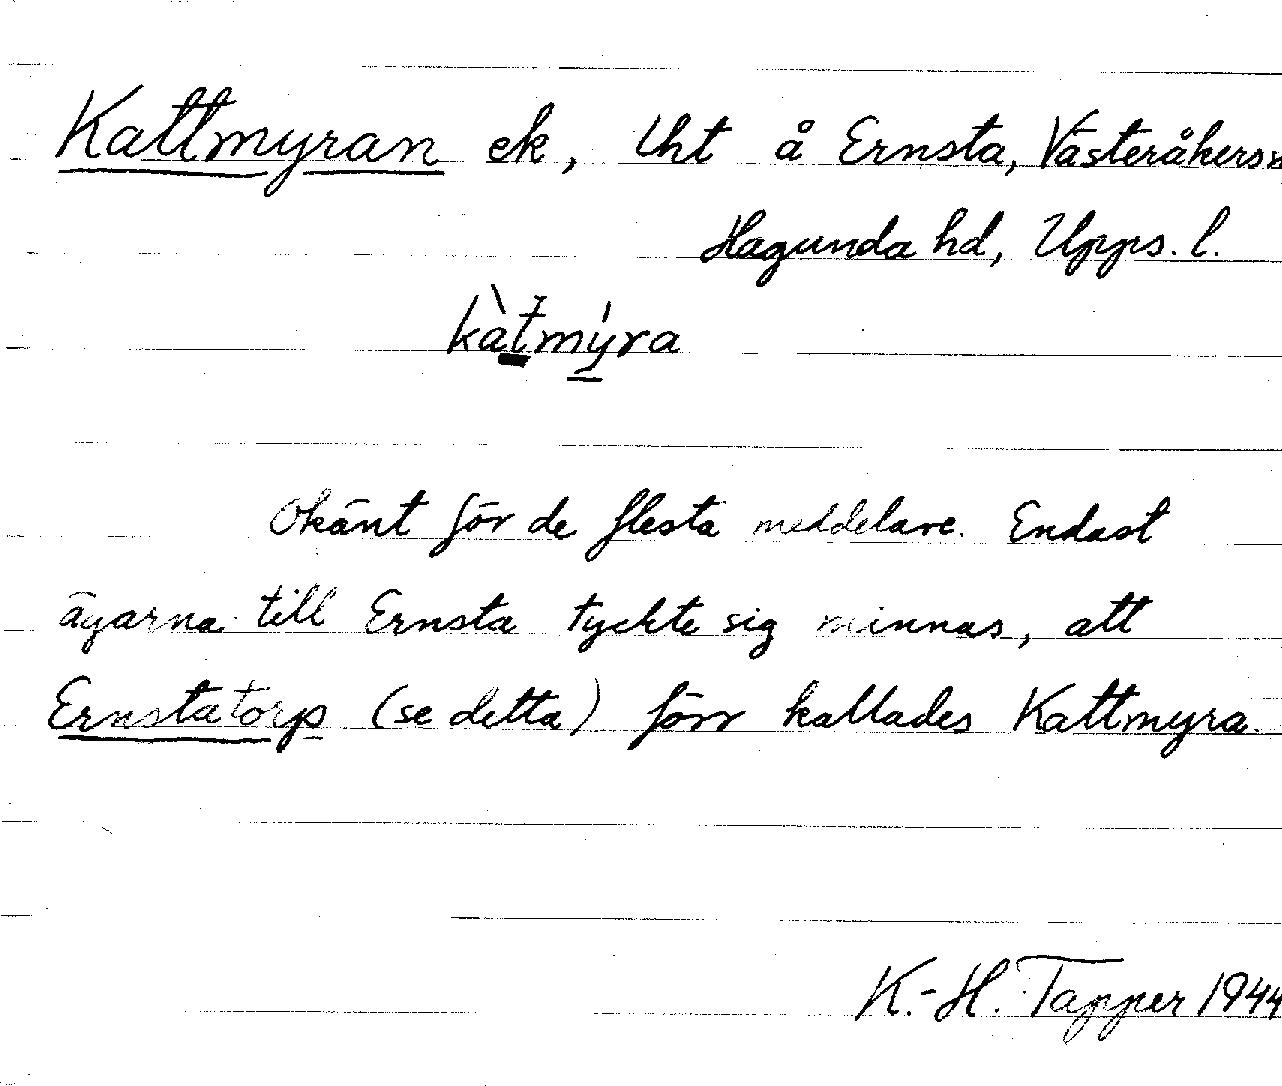 Kattmyran ek, lht å Ernsta, Västeråkers sn
Hagunda hd, Upps. l.
kàtmýra
Okänt för de flesta meddelare. Endast
ägarna till Ernsta tyckte sig minnas, att
Ernstatorp (se detta) förr kallades Kattmyra.
K.-H. Tapper 1944